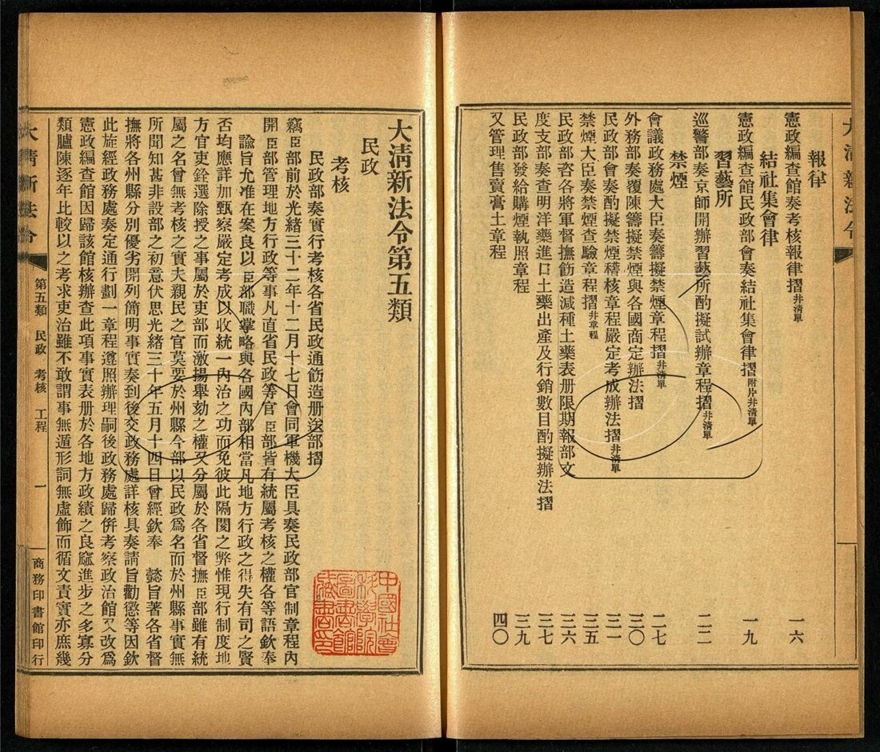 大清新法令
報律
憲政編查館奏考核報律摺并清單
一六
結社集會律
憲政編查館民政部會奏結社集會律摺附片并清單
一九
習藝所
巡警部奏京師開辦習藝所酌擬試辦章程摺并清單
二二
禁煙
會議政務處大臣奏籌擬禁煙章程摺并清單
二七
外務部奏覆陳籌擬禁煙與各國商定辦法摺
三〇
民政部會奏酌擬禁煙稽核章程嚴定考成辦法摺并清單
三一
禁煙大臣奏禁煙查驗章程摺并章程
三五
民政部咨各將軍督撫飭造減種土藥表册限期報部文
三六
度支部奏查明洋藥進口土藥出產及行銷數目酌擬辦法摺
三七
民政部發給購煙執照章程
三九
又管理售賣膏土章程
四〇
大清新法令第五類
民政
考核
民政部奏實行考核各省民政通飭造册送部摺
竊臣部前於光緒三十二年十二月十七日會同軍機大臣具奏民政部官制章程內
開臣部管理地方行政等事凡直省民政等官臣部皆有統屬考核之權各等語欽奉
諭旨允准在案良以臣部職掌略與各國內部相當凡地方行政之得失有司之賢
否均應詳加甄察嚴定考成以收統一內治之功而免彼此隔閡之弊惟現行制度地
方官吏銓選除授之事屬於吏部而激揚舉劾之權又分屬於各省督撫臣部雖有統
屬之名曾無考核之實夫親民之官莫要於州縣今部以民政爲名而於州縣事實無
所聞知甚非設部之初意伏思光緒三十年五月十四日曾經欽奉　懿旨著各省督
撫將各州縣分別優劣開列簡明事實奏到後交政務處詳核具奏請旨勸懲等因欽
此旋經政務處奏定通行劃一章程遵照辦理嗣後政務處歸併考察政治館又改爲
憲政編查館因歸該館核辦查此項事實表册於各地方政績之良窳進步之多寡分
類臚陳逐年比較以之考求吏治雖不敢謂事無遁形詞無虛飾而循文責實亦庶幾
大清新法令
第五類　民政　考核　工程
一
商務印書館印行
中國社會
科學院
圖書館
藏書印